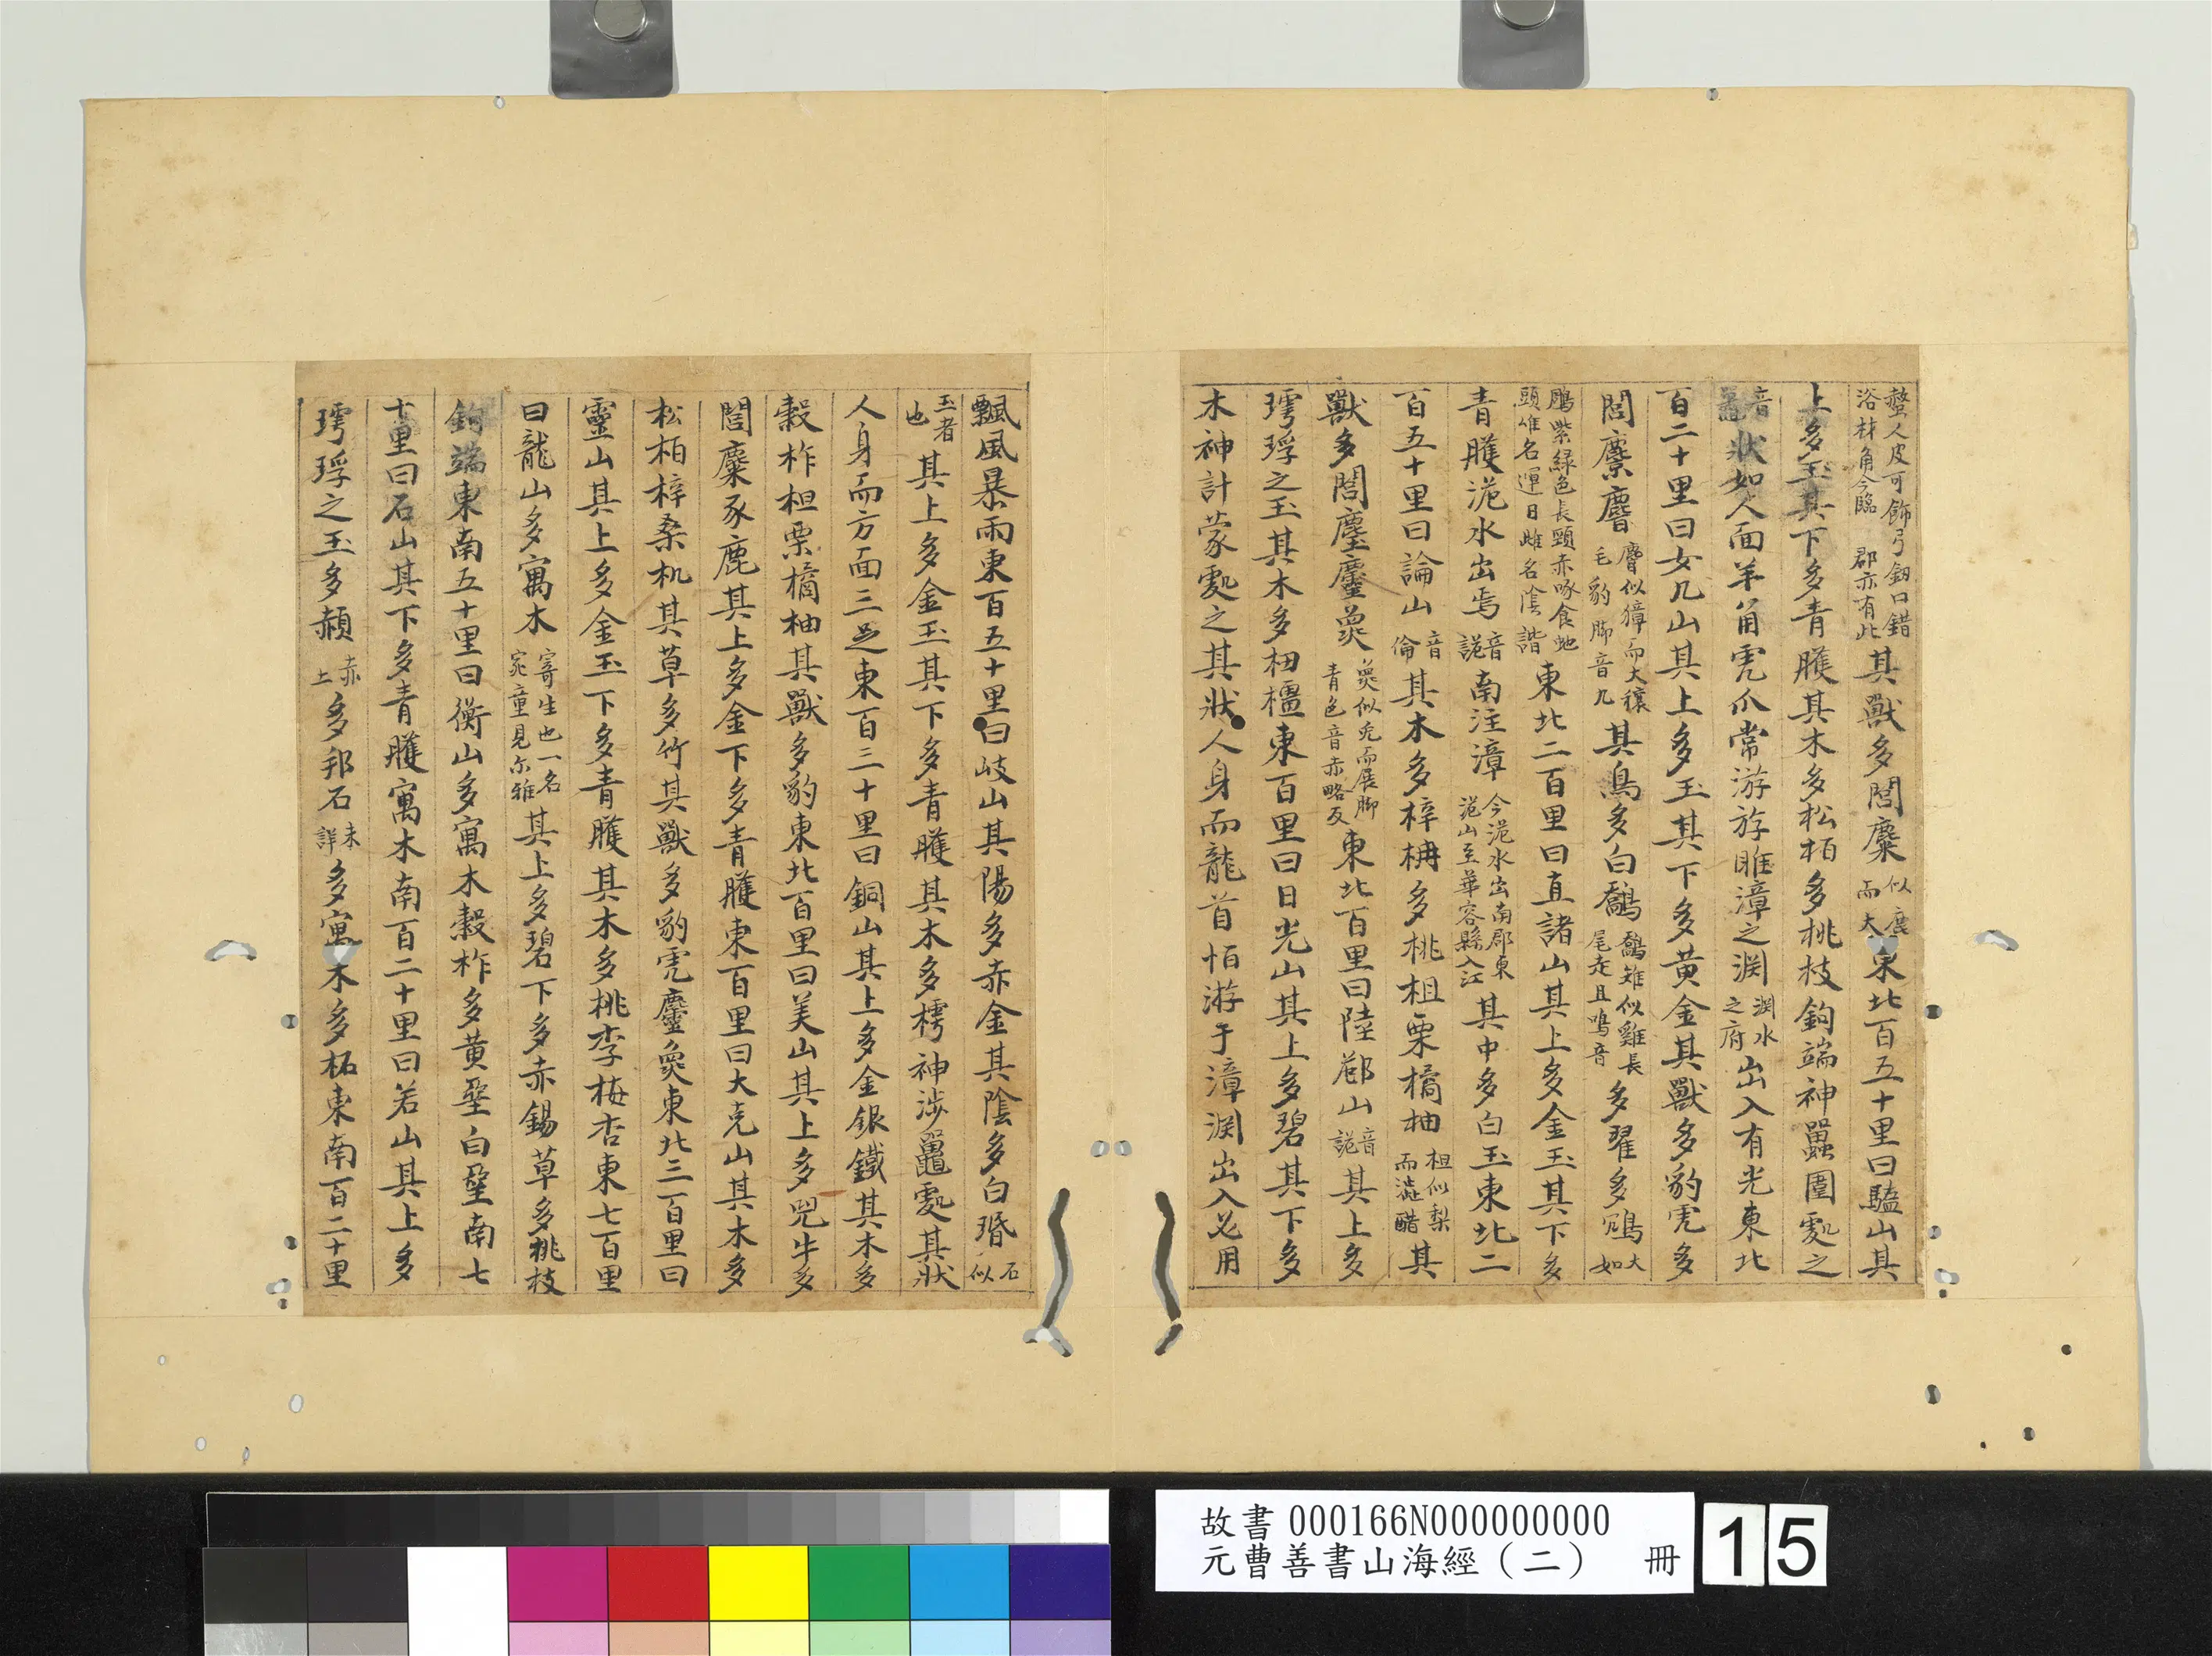 螫人皮可飾弓釼口錯浴材角今臨郡亦有此其獸多閭麋似鹿而大東北百五十里曰驕山其
上多玉其下多青雘其木多松栢多桃枝鉤端神䰠圍䖏之
音狀如人面羊角虎爪常游於睢漳之渕渕水之府出入有光東北
百二十里曰女几山其上多玉其下多黄金其獸多豹虎多
閭麋麖麂似獐而大穣毛豹脚音几其鳥多白鷮鷮雉似雞長尾走且鳴音多翟多鴆大如
鵰紫緑色長頸赤啄食虵頭雄名運日雌名陰諧東北二百里曰直諸山其上多金玉其下多
青雘洈水出焉音詭南注漳今洈水出南郡東洈山至華容縣入江其中多白玉東北二
百五十里曰論山音倫其木多梓枏多桃柤栗橘柚柤似梨而澁醋其
獸多閭麈麢㚟㚟似兎而鹿脚青色音赤略反東北百里曰陸䣀山音詭其上多
㻬琈之玉其木多杻橿東百里曰日光山其上多碧其下多
木神計蒙䖏之其狀人身而龍首恒游于漳渕出入必用
飄風暴雨東百五十里曰岐山其陽多赤金其陰多白珉石似
玉者也其上多金玉其下多青雘其木多樗神涉䖏其狀
人身而方面三足東百三十里曰銅山其上多金銀鐵其木多
穀柞柤栗橘柚其獸多豹東北百里曰美山其上多兕牛多
閭麋豕鹿其上多金下多青雘東百里曰大克山其木多
松栢梓桑机其草多竹其獸多豹虎麢㚟東北三百里曰
靈山其上多金玉下多青雘其木多桃李梅杏東七百里
曰龍山多寓木寄生也一名宛童見尔雅其上多碧下多赤錫草多桃枝
鉤端東南五十里曰衡山多寓木穀柞多黄堊白堊南七
十里曰石山其下多青雘寓木南百二十里曰若山其上多
㻬琈之玉多赭赤土多邦石未詳多寓木多柘東南百二十里
故書 000166N000000000
元曹善書山海經（二） 冊 15